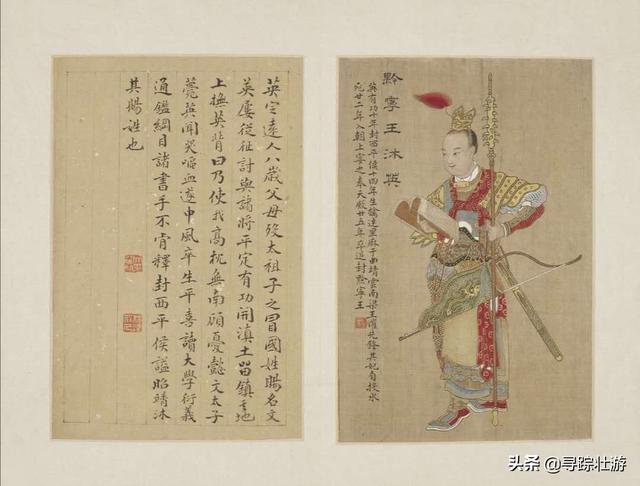 黔寧王沐英
英有功十年封西平侯十四年生擒達里麻于曲靖雲南梁王先其妃自投水
死廿二年入朝上宴之奉天殿廿五年卒追封黔寧王
英定遠人八歲父母歿太祖子之冒國姓賜名文
英屢從征討與諸將平定有功開滇土留鎮其地
上撫英背曰乃使我高枕無南顧憂懿文太子
薨英聞哭嘔血遂中風卒生平喜讀大學衍義
通鑑綱目諸書手不肯釋封西平侯謚昭靖沐
其賜姓也
头条 @寻踪壮游